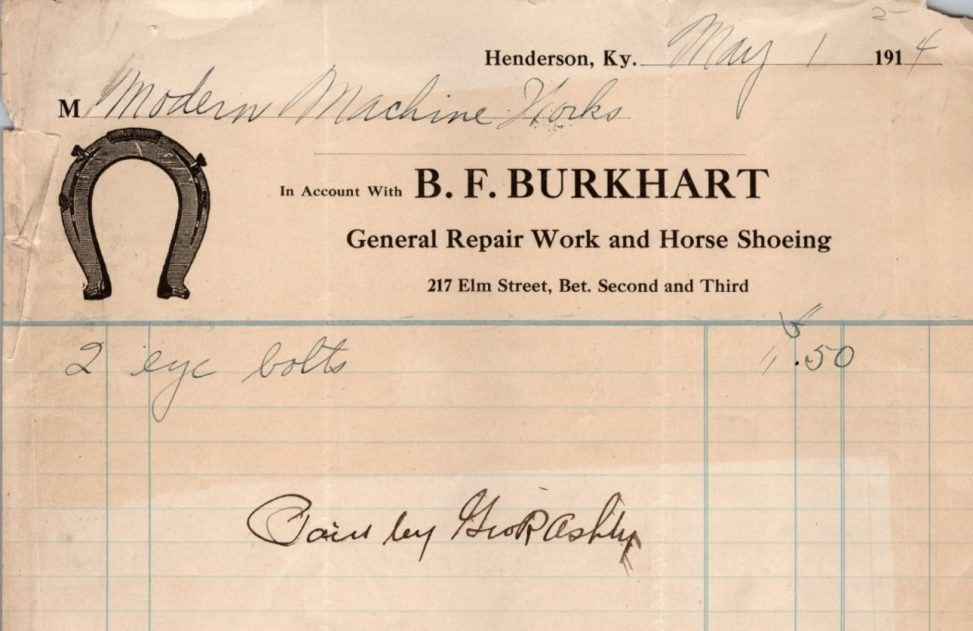 Henderson, Ky. May 1 1914
M Modern Machine Works
In Account With B. F. BURKHART
General Repair Work and Horse Shoeing
217 Elm Street, Bet. Second and Third
2 eye bolts .50
Paid by Geo R Ashby